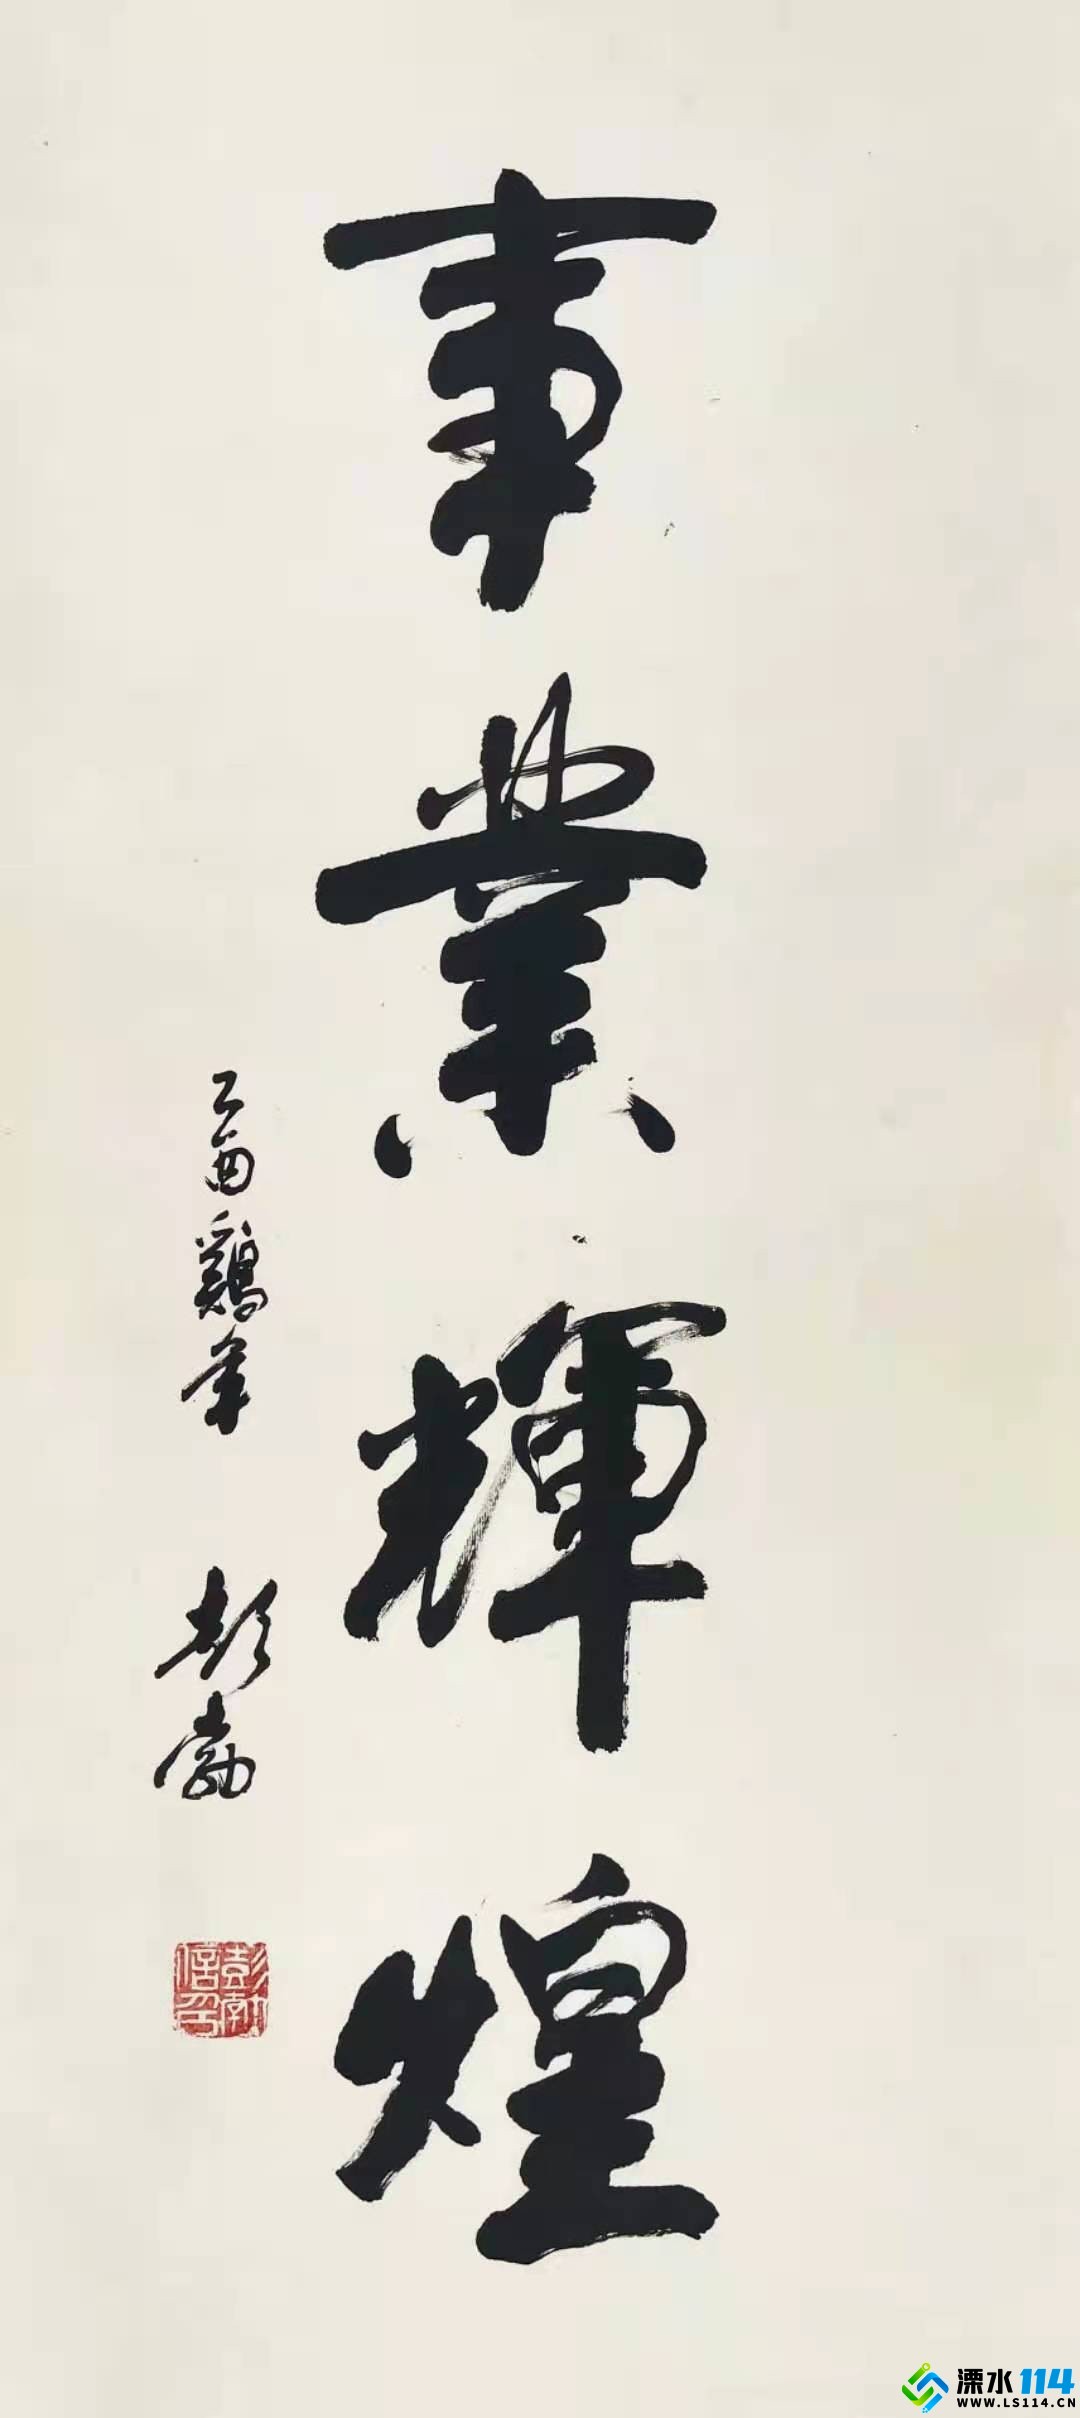 事業輝煌
乙酉鷄年 彭勃
彭勃信印
溧水114
WWW.LS114.CN